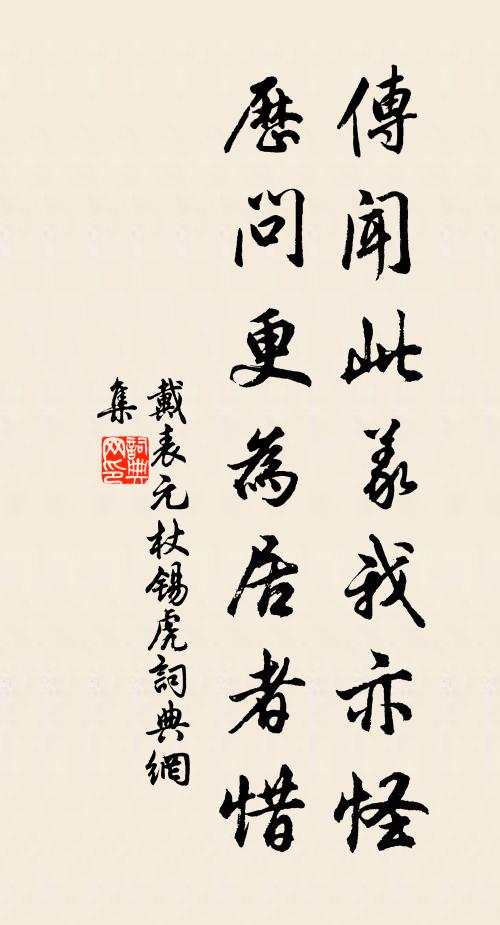 傳聞此義我亦怪
歷問更為居者惜
戴表元杖錫虎詞典網
集
詞典网印